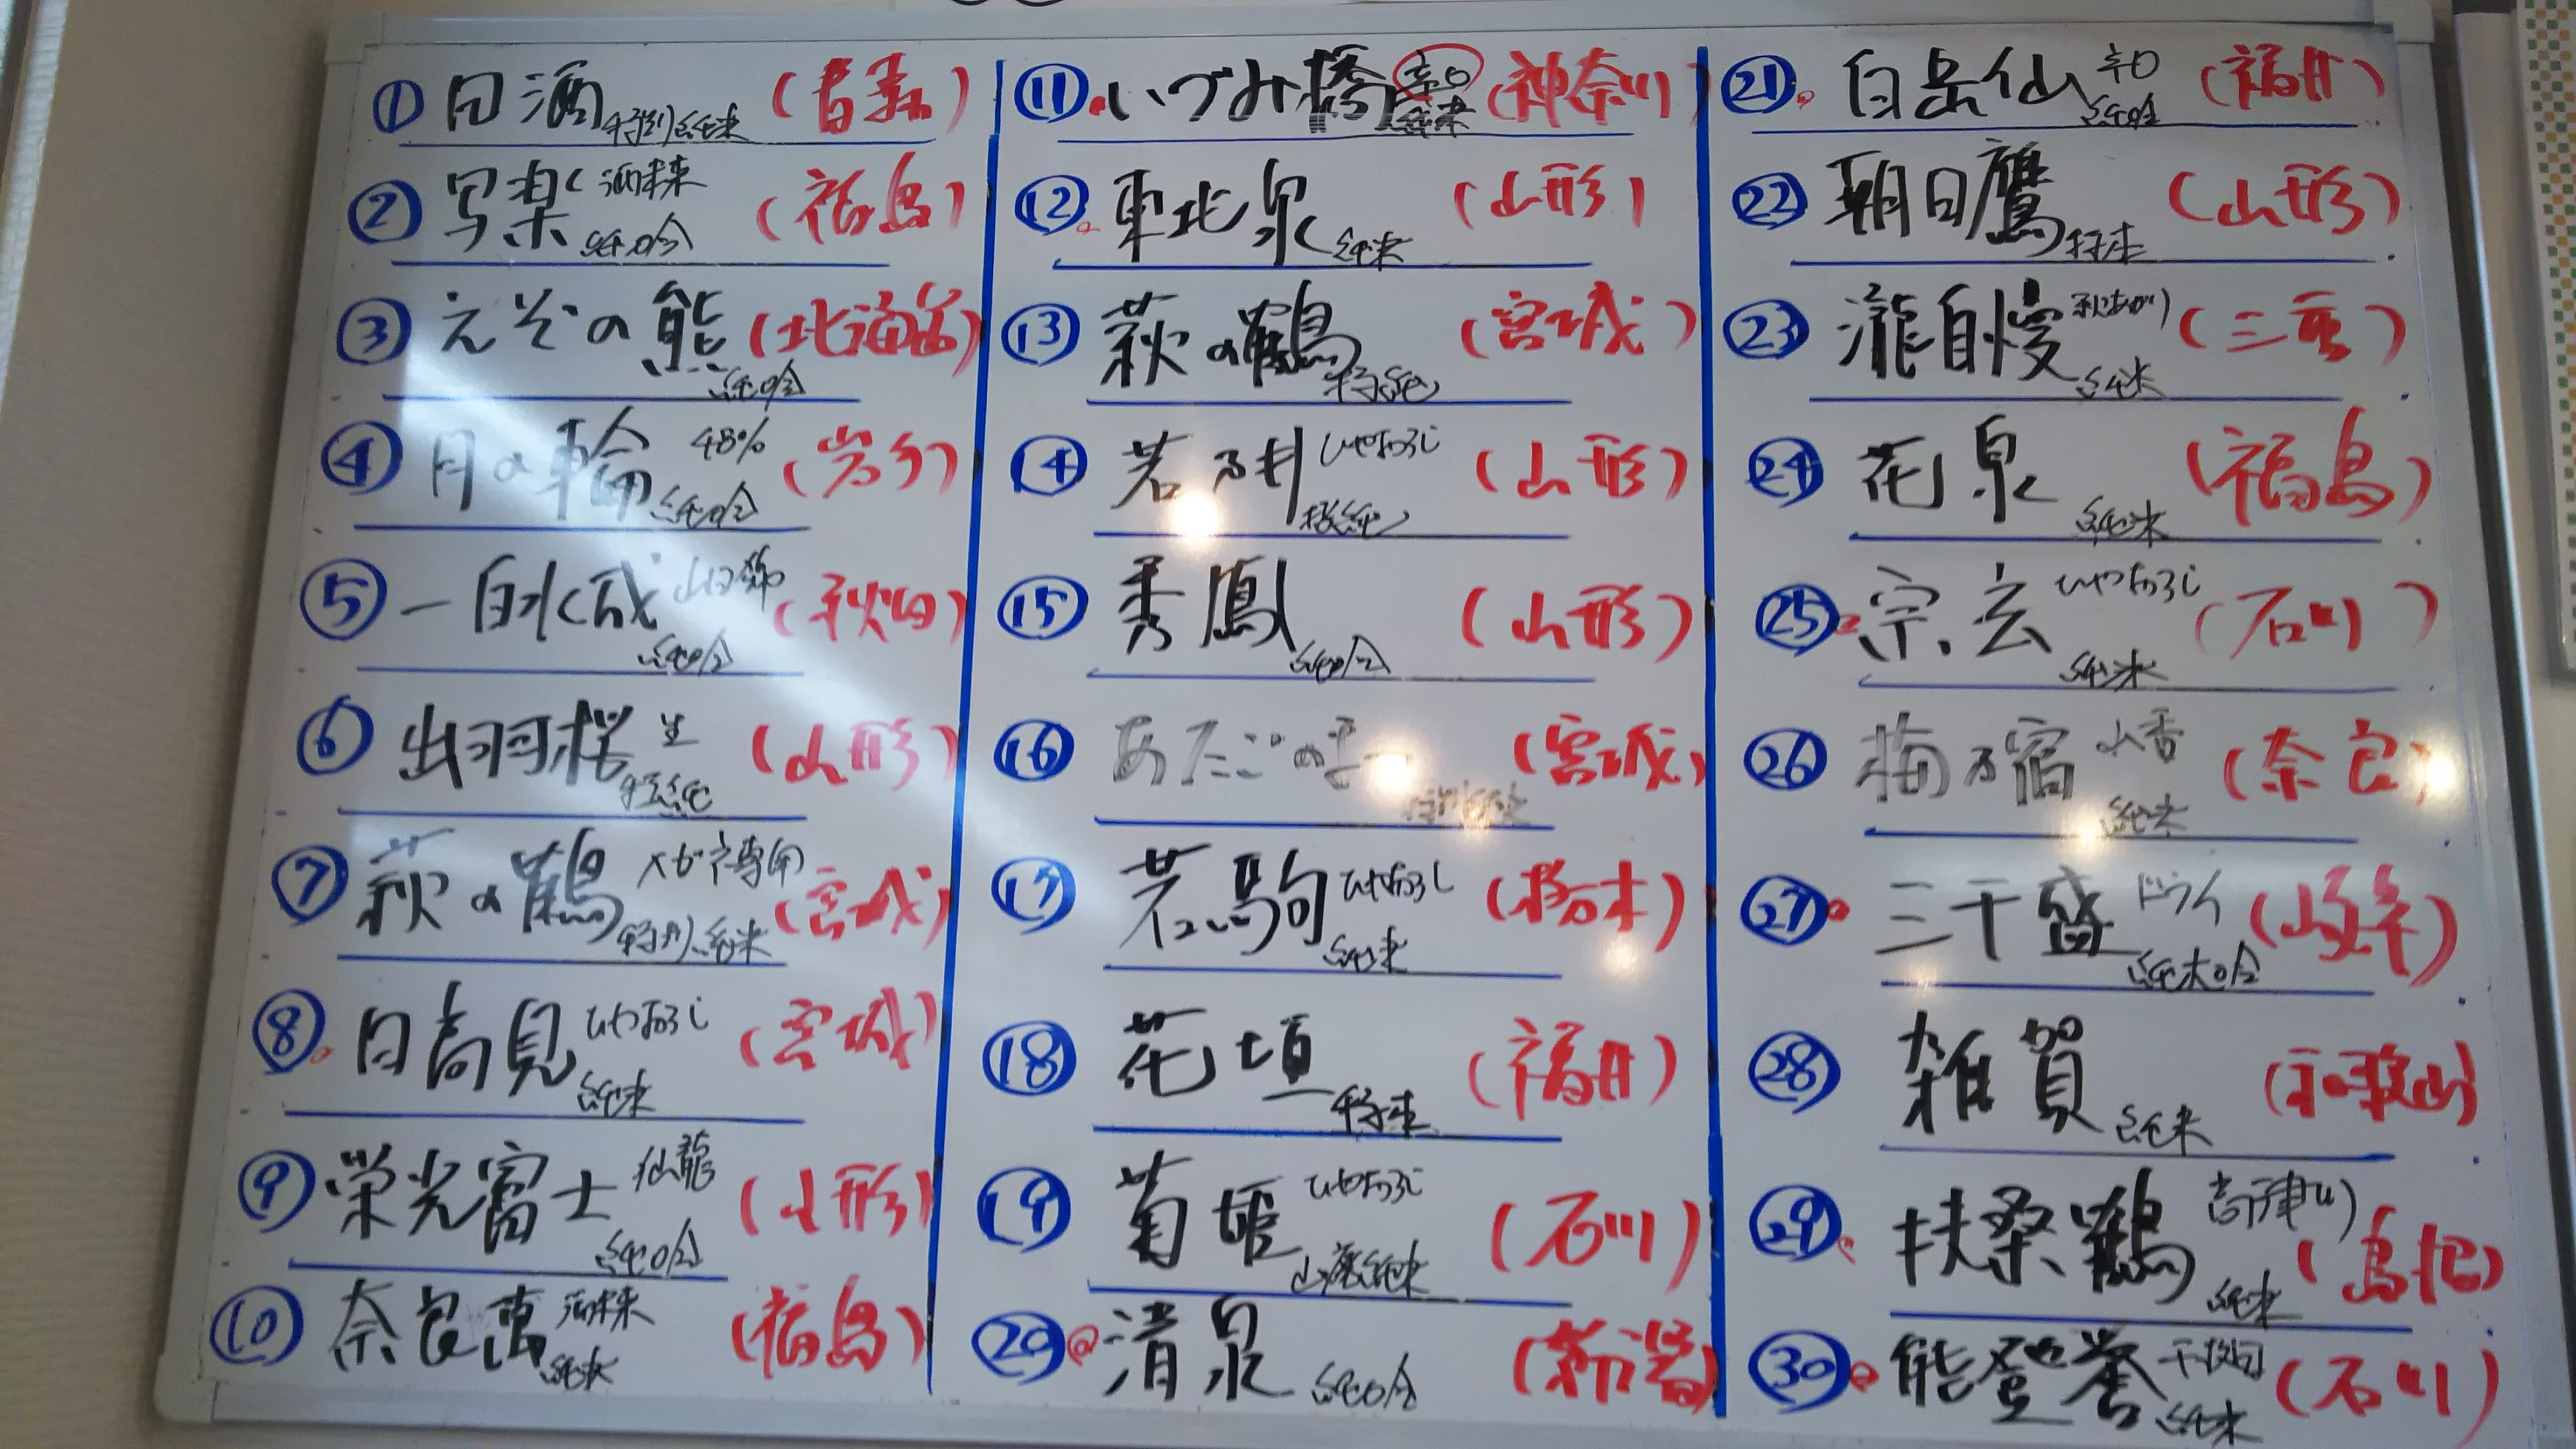 ① 田酒 特別純米 (青森)
② 写楽 酒未来 純吟 (福島)
③ えぞの熊 純吟 (北海道)
④ 月の輪 48% 純吟 (岩手)
⑤ 一白水成 山田錦 純吟 (秋田)
⑥ 出羽桜 生 特純 (山形)
⑦ 萩の鶴 メガネ専用 特別純米 (宮城)
⑧ 日高見 ひやおろし 純米 (宮城)
⑨ 栄光冨士 仙龍 純吟 (山形)
⑩ 奈良萬 酒未来 純米 (福島)
⑪ いづみ橋 辛口 純米 (神奈川)
⑫ 東北泉 純米 (山形)
⑬ 萩の鶴 特純 (宮城)
⑭ 若乃井 ひやおろし 特純 (山形)
⑮ 秀鳳 純吟 (山形)
⑯ あたごの (宮城)
⑰ 若駒 ひやおろし 純米 (栃木)
⑱ 花垣 特米 (福井)
⑲ 菊姫 ひやおろし 山廃純米 (石川)
⑳ 清泉 純吟 (新潟)
㉑ 白岳仙 辛口 純吟 (福井)
㉒ 朝日鷹 特本 (山形)
㉓ 瀧自慢 秋あがり 純米 (三重)
㉔ 花泉 純米 (福島)
㉕ 宗玄 ひやおろし 純米 (石川)
㉖ 梅乃宿 山香 純米 (奈良)
㉗ 三千盛 ドライ 純米吟 (岐阜)
㉘ 雑賀 純米 (和歌山)
㉙ 扶桑鶴 高津川 純米 (島根)
㉚ 能登誉 千枚田 純米 (石川)